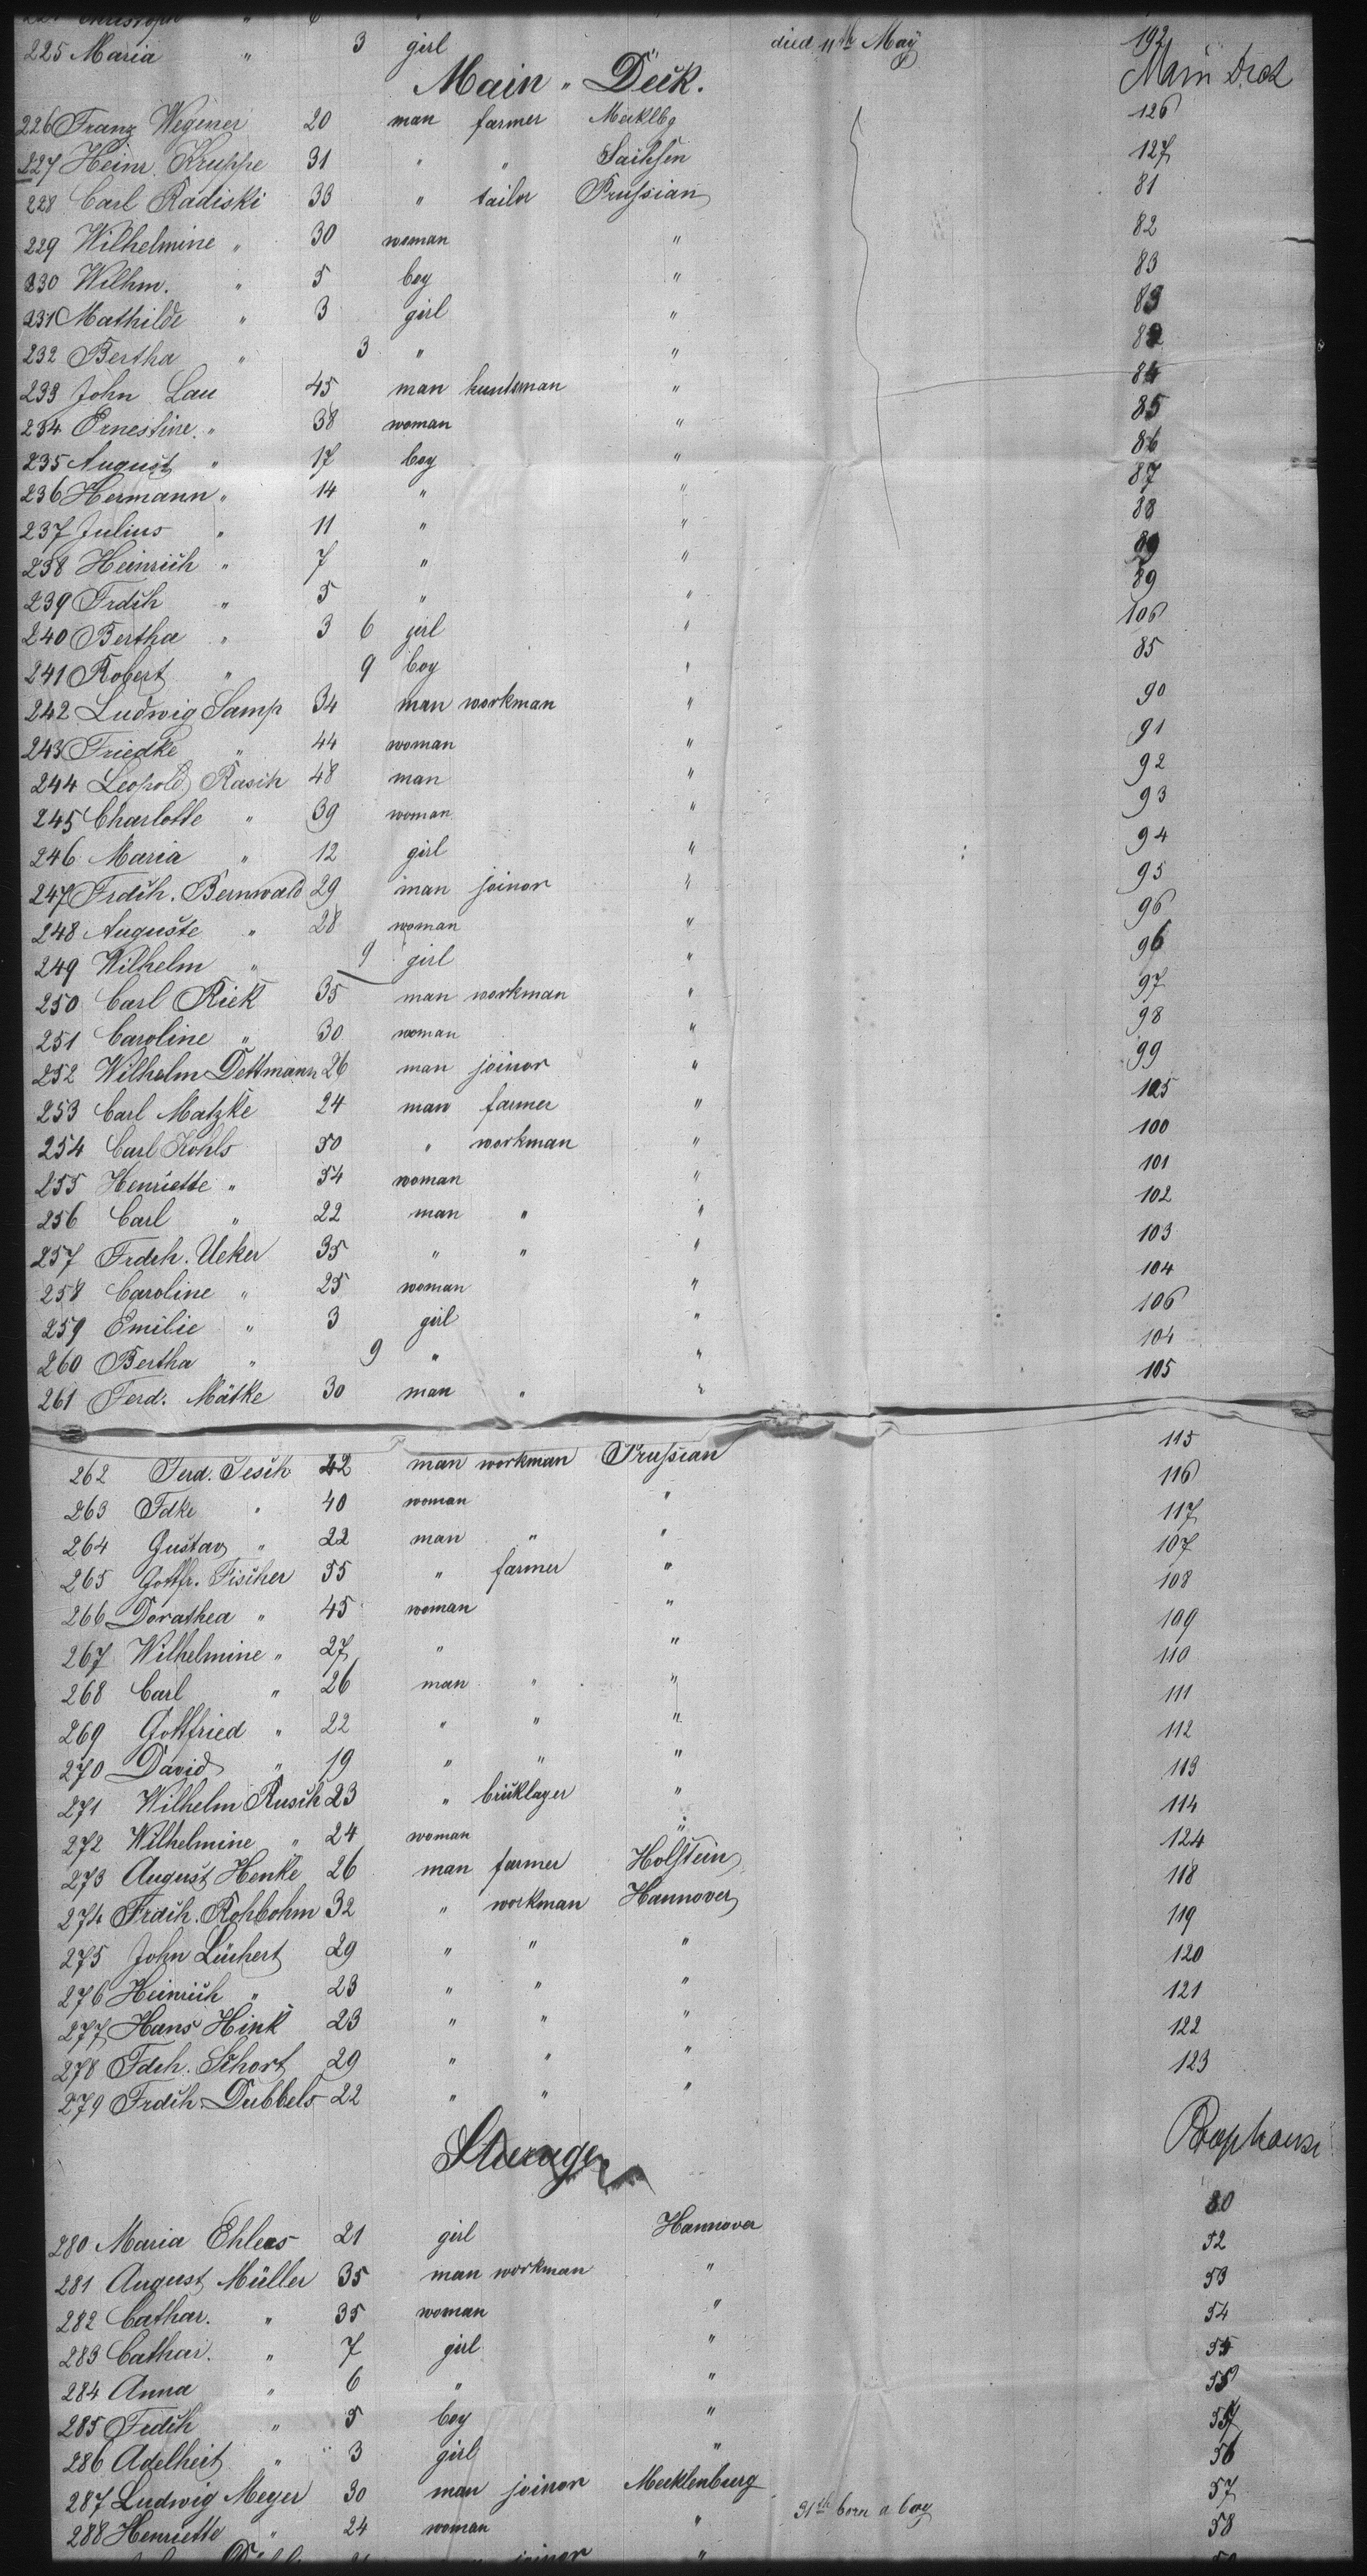 225 Maria " 3 girl died 11th May 192
Main " Deck. Main Deck
226 Franz Wegener 20 man farmer Mecklbg 126
227 Heinr. Kruppe 31 " " Sachsen 127
228 Carl Radiski 33 " tailor Prussian 81
229 Wilhelmine " 30 woman " 82
230 Wilhm. " 5 boy " 83
231 Mathilde " 3 girl " 83
232 Bertha " 3 " " 82
233 John Lau 45 man huntsman " 84
234 Ernestine " 38 woman " 85
235 August " 17 boy " 86
236 Hermann " 14 " " 87
237 Julius " 11 " " 88
238 Heinrich " 7 " " 89
239 Frdch " 5 " " 89
240 Bertha " 3 6 girl " 106
241 Robert " 9 boy " 85
242 Ludwig Samp 34 man workman " 90
243 Friedke " 44 woman " 91
244 Leopold Rasch 48 man " 92
245 Charlotte " 39 woman " 93
246 Maria " 12 girl " 94
247 Frdch. Bernwald 29 man joinor " 95
248 Auguste " 28 woman " 96
249 Wilhelm " 9 girl " 96
250 Carl Rick 35 man workman " 97
251 Caroline " 30 woman " 98
252 Wilhelm Dettmann 26 man joinor " 99
253 Carl Matzke 24 man farmer " 125
254 Carl Kohls 50 " workman " 100
255 Henriette " 54 woman " 101
256 Carl " 22 man " " 102
257 Frdch. Ueker 35 " " " 103
258 Caroline " 25 woman " 104
259 Emilie " 3 girl " 106
260 Bertha " 9 " " 104
261 Ferd. Mätke 30 man " " 105
262 Ferd. Tesch 42 man workman Prussian 115
263 Fdke " 40 woman " 116
264 Gustav " 22 man " " 117
265 Gottfr. Fischer 55 " farmer " 107
266 Dorathea " 45 woman " 108
267 Wilhelmine " 27 " " 109
268 Carl " 26 man " " 110
269 Gottfried " 22 " " " 111
270 David " 19 " " " 112
271 Wilhelm Rusch 23 " bricklager " 113
272 Wilhelmine " 24 woman " 114
273 August Henke 26 man farmer Holstein 124
274 Frdch. Rohbohm 32 " workman Hannover 118
275 John Lüchert 29 " " " 119
276 Heinrich " 23 " " " 120
277 Hans Hink 23 " " " 121
278 Fdch. Schort 29 " " " 122
279 Frdch. Dubbels 22 " " " 123
280 Maria Ehlers 21 girl Hannover 80
281 August Müller 35 man workman " 52
282 Cathar. " 35 woman " 53
283 Cathar. " 7 girl " 54
284 Anna " 6 " " 55
285 Frdch " 5 boy " 55
286 Adelheit " 3 girl " 557
287 Ludwig Meyer 30 man joinor Mecklenburg 56
288 Henriette " 24 woman " 31th born a boy 57
58